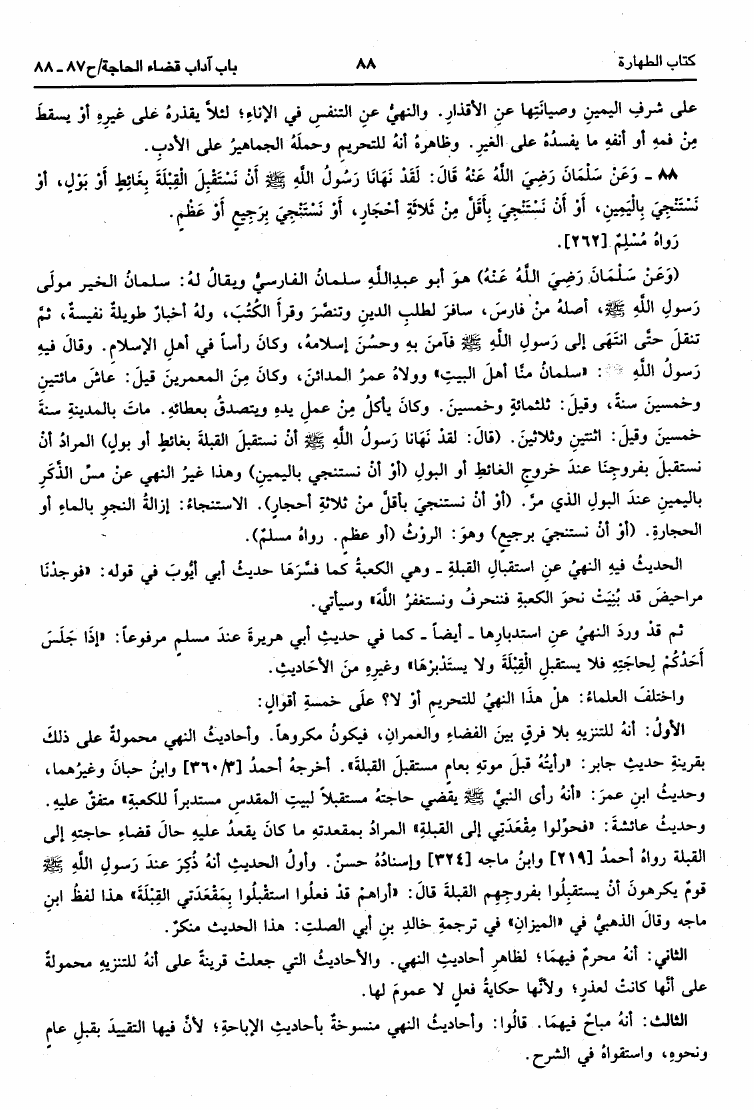 كتاب الطهارة ٨٨ باب آداب قضاء الحاجة/ح٨٧ ـ ٨٨
على شرفِ اليمينِ وصيانَتِها عنِ الأقذارِ. والنهيُّ عنِ التنفسِ في الإناءِ؛ لئلاَّ يقذرهُ على غيرِهِ أوْ يسقطَ
مِنْ فمهِ أو أنفهِ ما يفسدُهُ على الغيرِ. وظاهرهُ أنهُ للتحريمِ وحملَهُ الجماهيرُ على الأدبِ.
٨٨ ـ وَعَنْ سَلْمَانَ رَضِيَ اللَّهُ عَنْهُ قَالَ: لَقَدْ نَهَانَا رَسُولُ اللَّهِ ﷺ أَنْ نَسْتَقْبِلَ الْقِبْلَةَ بِغَائِطٍ أَوْ بَوْلٍ، أوْ
نَسْتَنْجِيَ بِالْيَمِينِ، أَوْ أَنْ نَسْتَنْجِيَ بِأَقَلَّ مِنْ ثَلَاثَةِ أَحْجَارٍ، أَوْ نَسْتَنْجِيَ بِرَجِيعٍ أَوْ عَظْمٍ.
رَوَاهُ مُسْلِمٌ [٢٦٢].
(وَعَنْ سَلْمَانَ رَضِيَ اللَّهُ عَنْهُ) هوَ أبو عبدِاللَّهِ سلمانُ الفارسيُّ ويقالُ لهُ: سلمانُ الخيرِ مولَى
رَسولِ اللَّهِ ﷺ، أصلهُ منْ فارسَ، سافرَ لطلبِ الدينِ وتنصَّرَ وقرأَ الكُتُبَ، ولهُ أخبارٌ طويلةٌ نفيسةٌ، ثمَّ
تنقلَ حتَّى انتهَى إلى رَسولِ اللَّهِ ﷺ فآمنَ بهِ وحسُنَ إسلامهُ، وكانَ رأساً في أهلِ الإسلامِ. وقالَ فيهِ
رَسولُ اللَّهِ ﷺ: «سلمانُ منَّا أهلَ البيتِ» وولاهُ عمرُ المدائنَ، وكانَ مِنَ المعمرينَ قيلَ: عاشَ مائتينِ
وخمسينَ سنةً، وقيلَ: ثلثمائةٍ وخمسينَ. وكانَ يأكلُ مِنْ عملِ يدهِ ويتصدقُ بعطائهِ. ماتَ بالمدينةِ سنةَ
خمسينَ وقيلَ: اثنتينِ وثلاثينَ. (قالَ: لقدْ نَهَانا رَسولُ اللَّهِ ﷺ أنْ نستقبلَ القبلةَ بغائطٍ أو بولٍ) المرادُ أنْ
نستقبلَ بفروجِنَا عندَ خروجِ الغائطِ أو البولِ (أوْ أنْ نستنجي باليمينِ) وهذا غيرُ النهي عنْ مسِّ الذَّكَرِ
باليمينِ عندَ البولِ الذي مرَّ. (أوْ أنْ نستنجيَ بأقلَّ منْ ثلاثةِ أحجارٍ). الاستنجاءُ: إزالةُ النجوِ بالماءِ أو
الحجارةِ. (أوْ أنْ نستنجيَ برجيعٍ) وهوَ: الروْثُ (أو عظمٍ. رواهُ مسلمٌ).
الحديثُ فيهِ النهيُ عنِ استقبالِ القبلةِ ـ وهي الكعبةُ كما فسَّرَهَا حديثُ أبي أيُّوبَ في قوله: «فوجدْنَا
مراحيضَ قد بُنِيَتْ نحوَ الكعبةِ فننحرفُ ونستغفرُ اللَّهَ» وسيأتي.
ثم قدْ وردَ النهيُ عنِ استدبارِها ـ أيضاً ـ كما في حديثِ أبي هريرةَ عندَ مسلمٍ مرفوعاً: «إذَا جَلَسَ
أَحَدُكُمْ لِحاجَتِهِ فلا يستقبلِ القِبْلَةَ ولا يستَدْبرْهَا» وغيرِهِ منَ الأحَاديثِ.
واختلفَ العلماءُ: هلْ هذَا النهيُ للتحريمِ أوْ لا؟ علَى خمسةِ أقوالٍ:
الأولُ: أنهُ للتنزيهِ بلا فرقٍ بينَ الفضاءِ والعمرانِ، فيكونُ مكروهاً. وأحاديثُ النهي محمولةٌ على ذلكَ
بقرينةِ حديثِ جابرٍ: «رأيتُهُ قبلَ موتهِ بعامٍ مستقبلَ القبلةِ». أخرجهُ أحمدُ [٣٦٠/٣] وابنُ حبانَ وغيرُهما،
وحديثُ ابنِ عمرَ: «أنهُ رأى النبيَّ ﷺ يقضي حاجتهُ مستقبلاً لبيتِ المقدسِ مستدبراً للكعبةِ» متفقٌ عليهِ.
وحديثُ عائشةَ: «فحوِّلوا مِقْعَدَتِي إلى القبلةِ» المرادُ بمقعدتهِ ما كانَ يقعدُ عليهِ حالَ قضاءِ حاجتهِ إلى
القبلة رواهُ أحمدُ [٢١٩] وابنُ ماجه [٣٢٤] وإسنادُهُ حسنٌ. وأولُ الحديثِ أنهُ ذُكِرَ عندَ رَسولِ اللَّهِ ﷺ
قومٌ يكرهونَ أنْ يستقبِلُوا بفروجِهم القبلةَ قالَ: «أراهمْ قدْ فعلُوا استقْبِلُوا بِمَقْعَدَتي القِبْلَةَ» هذا لفظُ ابنِ
ماجه وقالَ الذهبيُّ في «الميزانِ» في ترجمةِ خالدِ بنِ أبي الصلتِ: هذا الحديث منكرٌ.
الثاني: أنهُ محرمٌ فيهمَا؛ لظاهرِ أحاديثِ النهي. والأحاديثُ التي جعلتْ قرينةً على أنهُ للتنزيهِ محمولةٌ
على أنَّها كانتْ لعذرٍ؛ ولأنَّها حكايةُ فعلٍ لا عمومَ لها.
الثالث: أنهُ مباحٌ فيهمَا. قالُوا: وأحاديثُ النهي منسوخةٌ بأحاديثِ الإباحةِ؛ لأنَّ فيها التقييدَ بقبلِ عامٍ
ونحوهِ، واستقواهُ في الشرحِ.